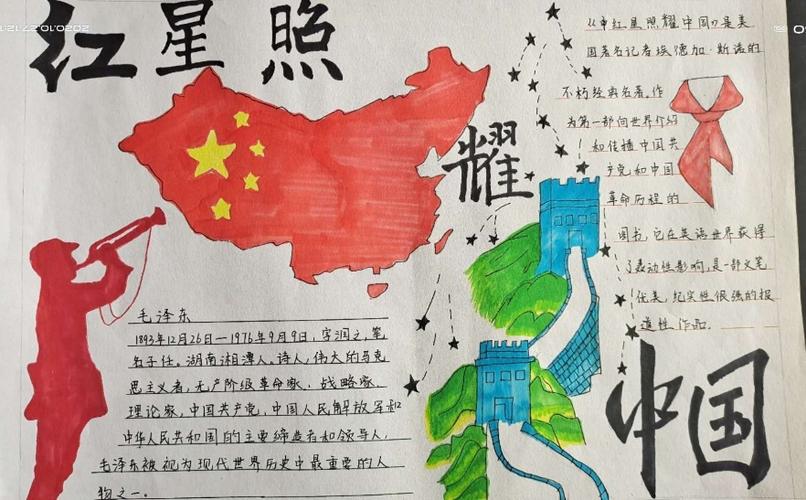 红星照
耀
中国
《审红星照耀中国》是美
国著名记者埃德加·斯诺的
不朽经典名著。作
为第一部向世界介绍
和传播中国共
产党和中国
革命历程的
图书,它在英语世界获得
了轰动性影响,是一部文笔
优美,纪实性很强的报
道性作品.
毛泽东
1893年12月26日—1976年9月9日,字润之,笔
名子任。湖南湘潭人,诗人,伟大的马克
思主义者,无产阶级革命家、战略家、
理论家,中国共产党,中国人民解放军和
中华人民共和国的主要缔造者和领导人,
毛泽东被视为现代世界历史中最重要的人
物之一。